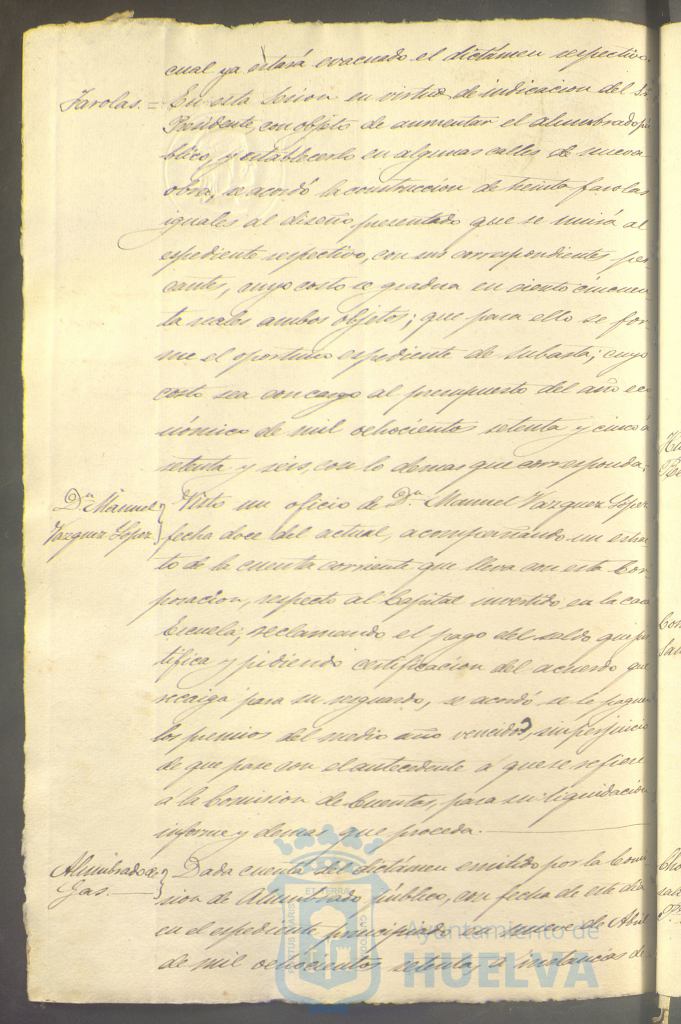 cual ya estará evacuado el dictámen respectivo.
Farolas. = En esta sesion en virtud de indicacion del Sr.
Presidente, con objeto de aumentar el alumbrado pú
blico, y establecerlo en algunas calles de nueva
obra, se acordó la construccion de treinta farolas
iguales al diseño presentado que se unirá al
espediente respectivo, con sus correspondientes pes
cantes, cuyo costo se gradua en ciento cincuen
ta reales ambos objetos; que para ello se for
me el oportuno espediente de subasta; cuyo
costo sea con cargo al presupuesto del año eco
nómico de mil ochocientos setenta y cinco á
setenta y seis, con lo demas que corresponda.
Dn. Manuel
Vazquez Lopez.
Visto un oficio de Dn. Manuel Vazquez Lopez
fecha doce del actual, acompañando un estrac
to de la cuenta corriente que lleva con esta Cor
poracion, respecto al Capital invertido en la casa
Escuela, reclamando el pago del saldo que jus
tifica y pidiendo certificacion del acuerdo que
recaiga para su resguardo, se acordó se le paguen
los premios del medio año vencido, sin perjuicio
de que pase con el antecedente á que se refiere
á la Comision de Cuentas, para su liquidacion
informe y demas que proceda.
Alumbrado de
Gas.
Dada cuenta del dictámen emitido por la Comi
sion de Alumbrado público, con fecha de este dia
en el espediente principiado en nueve de Abril
de mil ochocientos setenta, á instancias de
Ayuntamiento de
HUELVA